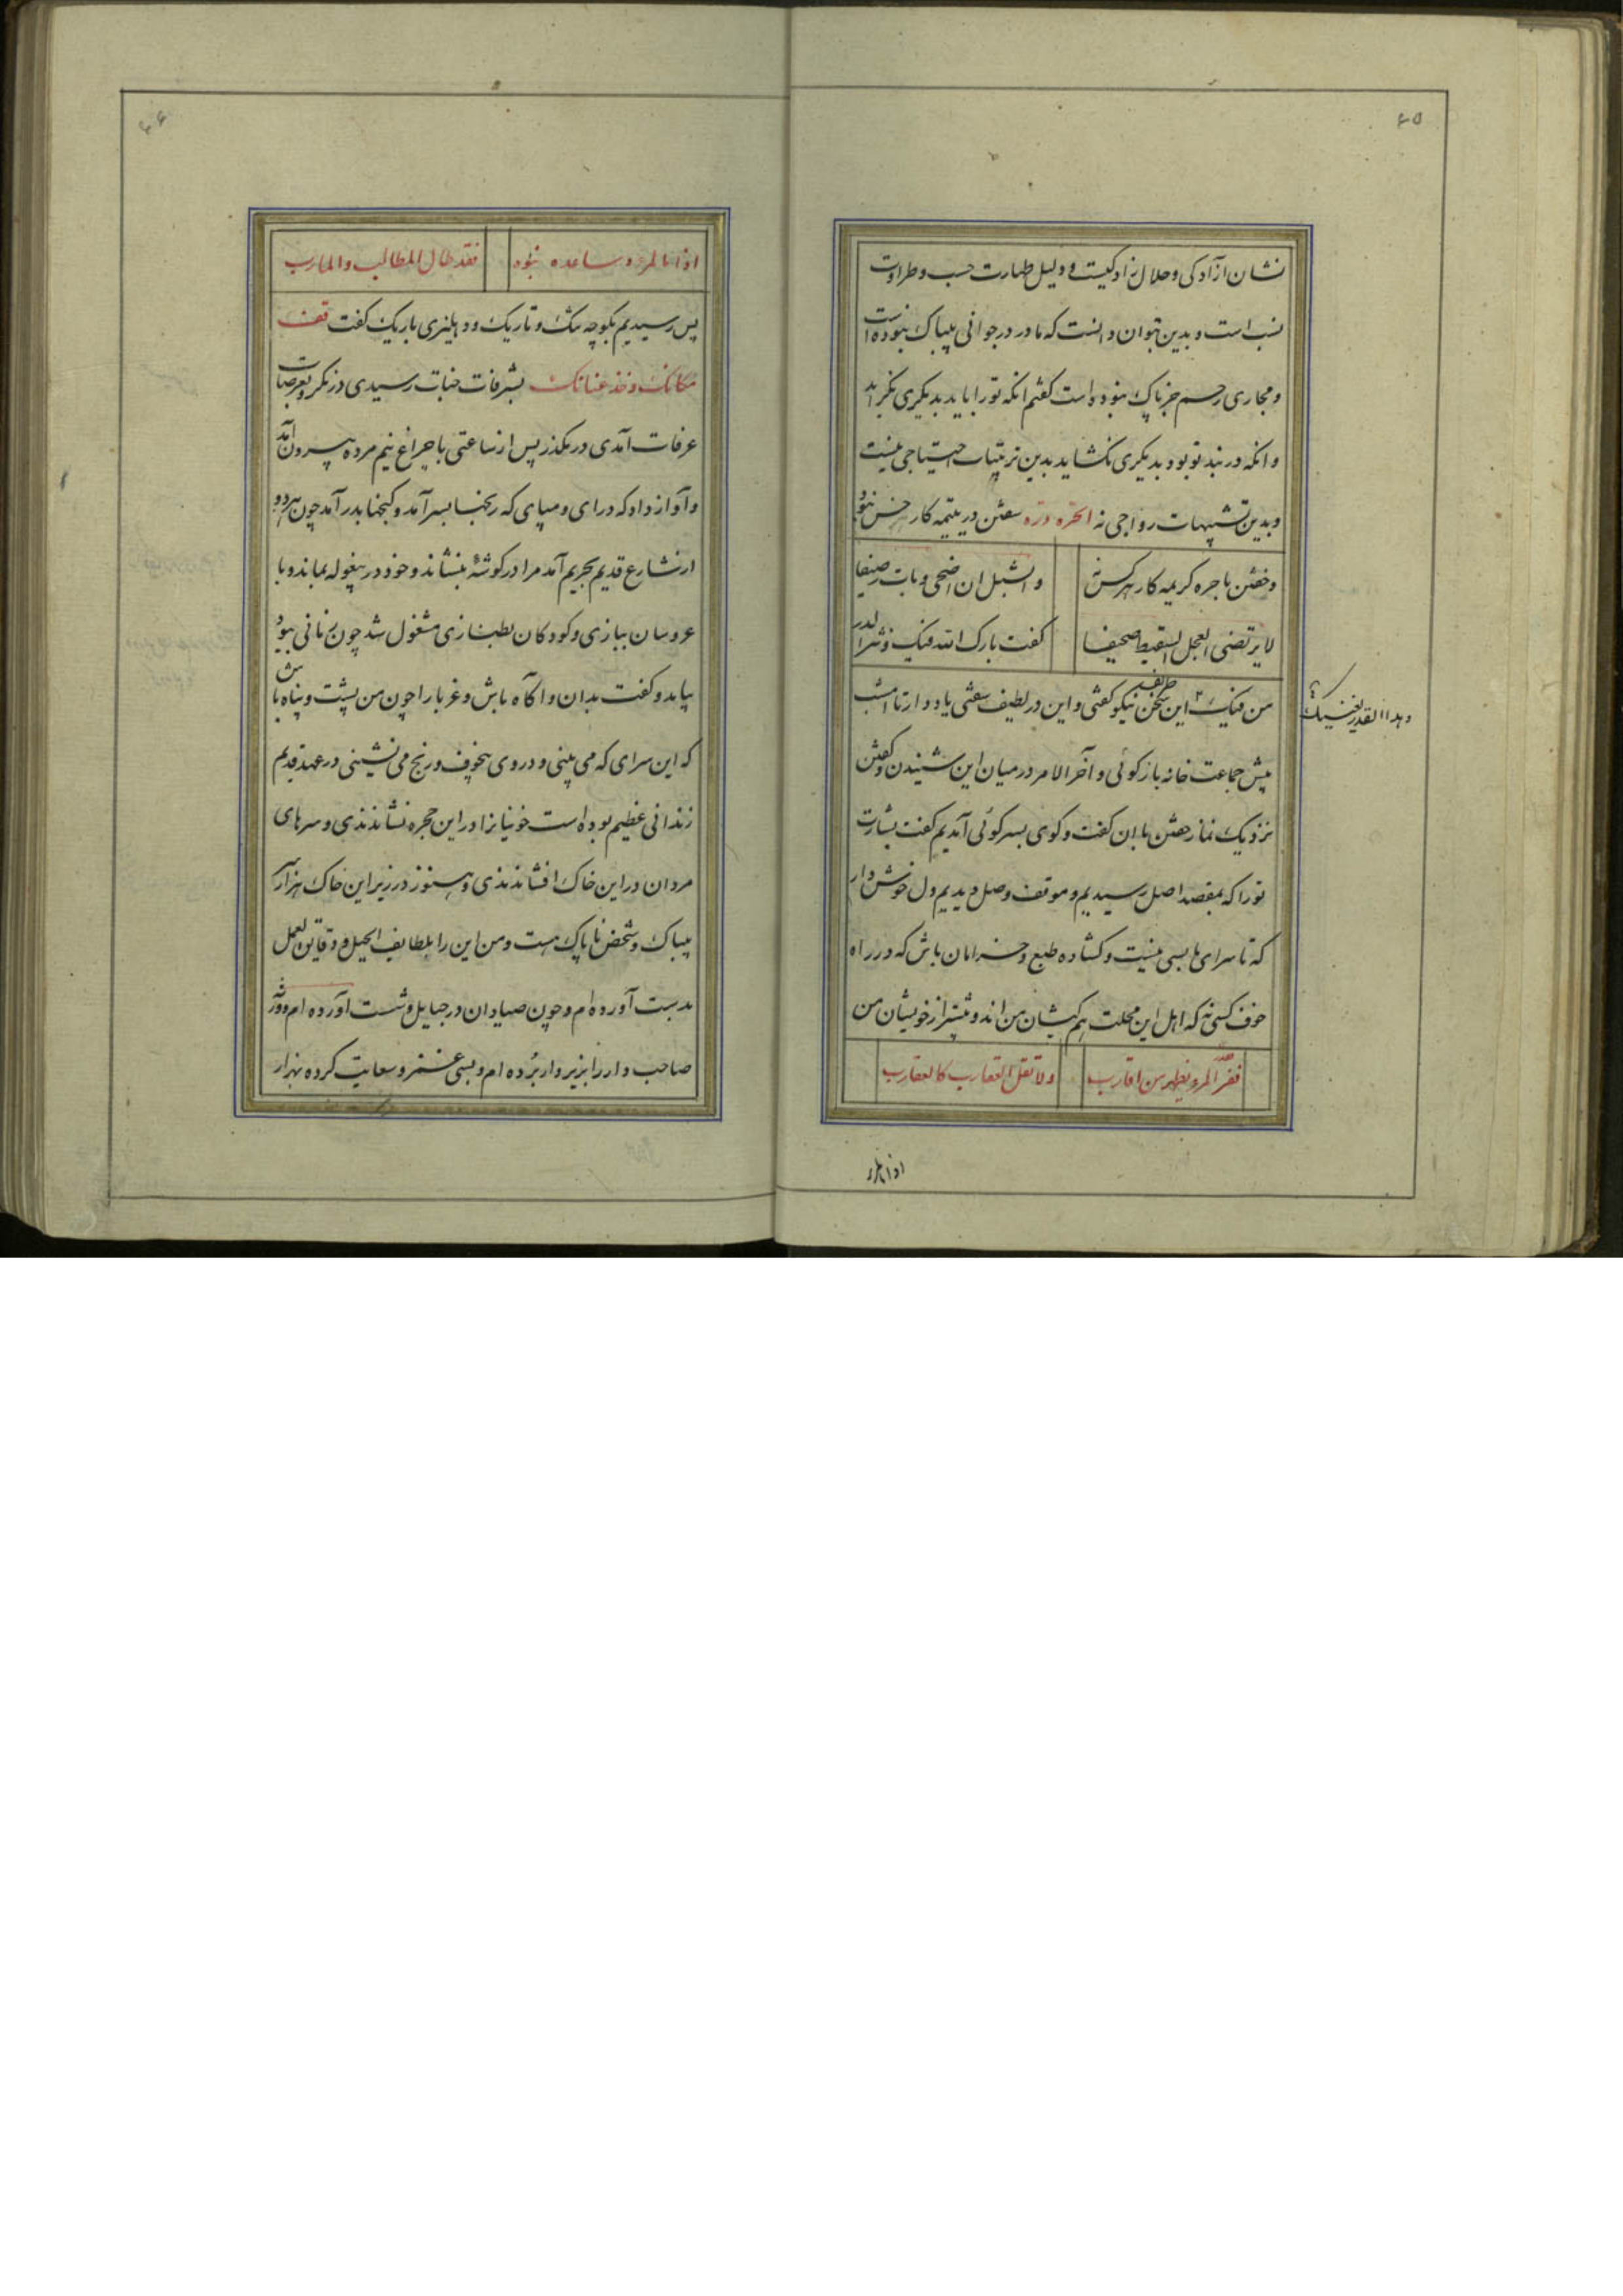 ۶۵
نشان ازآدکی و حلال زادکیست و دلیل طهارت حسب و طراوت
نسب است و بدین بتوان دانست که مادر در جوانی بیباک نبوده است
و مجاری رحم جز پاک نبوده است کفتم انکه تو را باید بدیکری نکراید
و انکه در بند تو بود بدیکری نکشاید بدین ترتیبات احتیاجی نیست
و بدین تشبیهات رواجی نه الحره درّه سفتن در یتیمه کار هر خس نبود
و خفتن با حره کریمه کار هر کس نه
و الشبل ان اضحی و بات رضیعا
لا یرتضی العجل السقیط ضجیعا
کفت بارک الله فیک و نثر الدر
من فیک این سخن نیکو کفتی و این در لطیف سفتی یاد دار تا امشب
و هذا القدر یکفیک
پیش جماعت خانه بازکوئی و آخر الامر در میان این شنیدن و کفتن
نزدیک نماز خفتن باان کفت و کوی بسر کوئی آمدیم کفت بشارت
تو را که بمقصد اصل رسیدیم و موقف وصل دیدیم دل خوش دار
که تا سرای ما بسی نیست و کشاده طبع و خرامان باش که در راه
خوف کسی نه که اهل این محلت هم کیشان من اند و بیشتر از خویشان من
ففخر المرء یظهر من اقارب
ولا تقل العقارب کالعقارب
اذا ما المرء
۶۶
اذا ما المرء ساعده بنوه
فقد طال المطالب والمارب
پس رسیدیم بکوچه تنک و تاریک و دهلیزی باریک کفت قف
مکانک و خذ عنانک بشرفات جنات رسیدی در نکر و بعرصات
عرفات آمدی در مکذر پس از ساعتی با چراغ نیم مرده بیرون آمد
و آواز داد که درای و میپای که رنجها بسر آمد و کنجها بدر آمد چون هر دو
از شارع قدیم بحریم آمد مرا در کوشهٔ بنشاند و خود در بیغوله بماند و با
عروسان ببازی و کودکان بطنازی مشغول شد چون زمانی ببود
بیامد و کفت بدان و اکاه باش و غربا را چون من پشت و پناه باش
که این سرای که می بینی و در وی بیخوف و رنج می نشینی در عهد قدیم
زندانی عظیم بوده است خونیانرا در این حجره نشاندندی و سرهای
مردان در این خاک افشاندندی و هنوز در زیر این خاک هزار سر
بیباک و شخص ناپاک هست و من این را بلطایف الحیل و دقایق العمل
بدست آورده ام و چون صیادان در حبایل و شست آورده ام و ورثه
صاحب دار را بزیر دار برده ام و بسی غمز و سعایت کرده بهزار